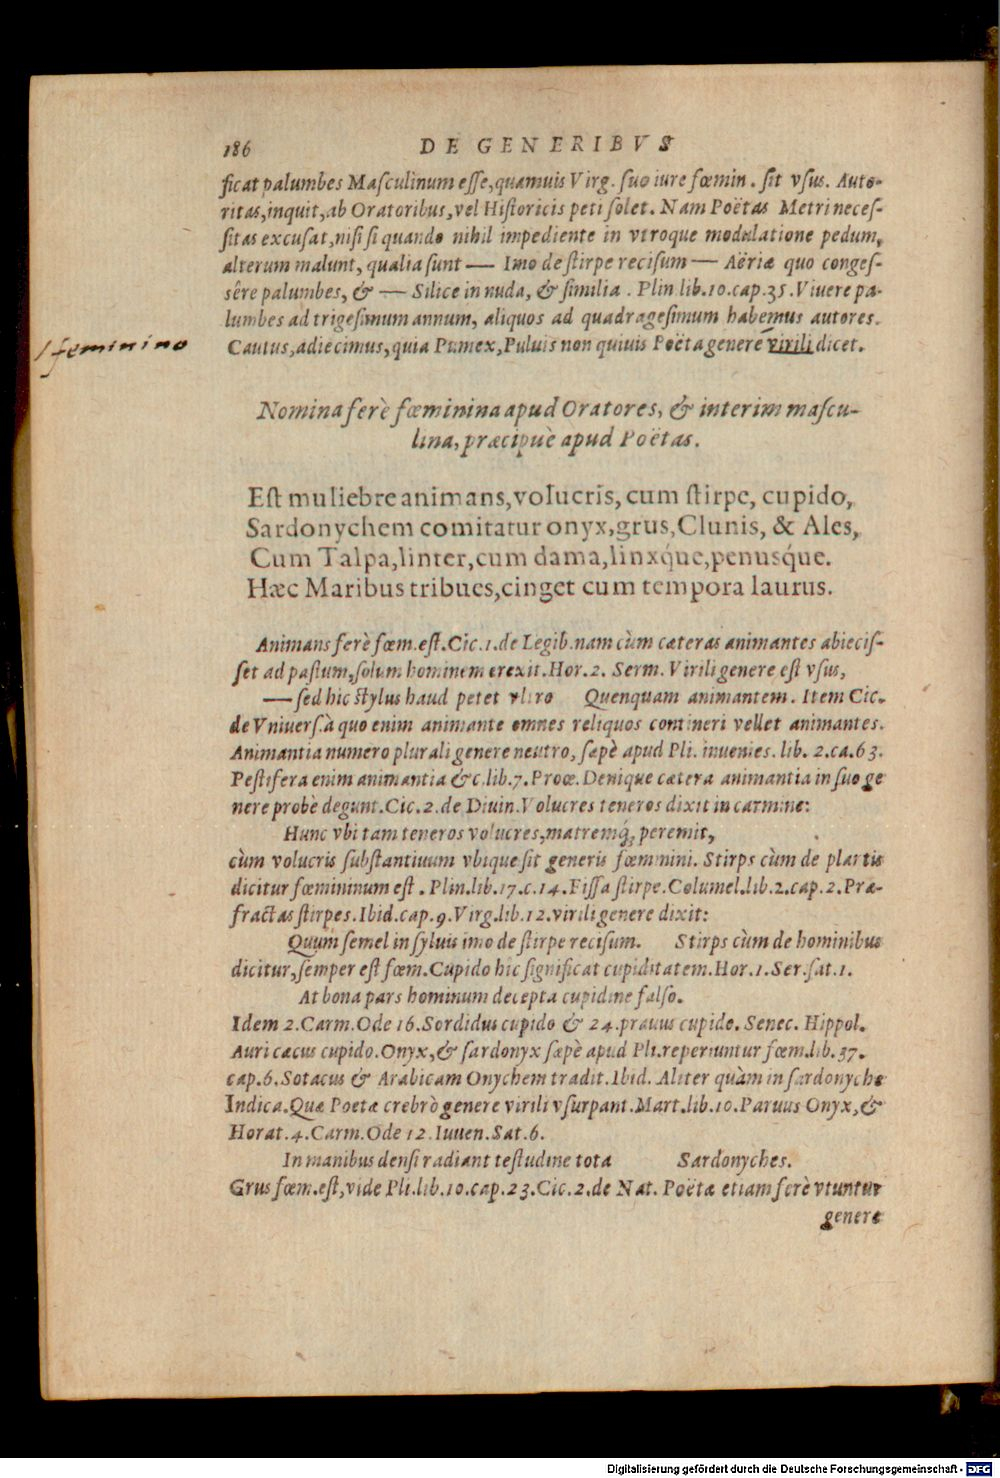 186 DE GENERIBVS
ficat palumbes Maſculinum eſſe, quamuis Virg. ſuo iure fœmin. ſit vſus. Auto-
ritas, inquit, ab Oratoribus, vel Hiſtoricis peti ſolet. Nam Poëtas Metri neceſ-
ſitas excuſat, niſi ſi quando nihil impediente in vtroque modulatione pedum,
alterum malunt, qualia ſunt — Imo de ſtirpe reciſum — Aëriæ quo congeſ-
ſêre palumbes, & — Silice in nuda, & ſimilia. Plin lib. 10. cap. 35. Viuere pa-
lumbes ad trigeſimum annum, aliquos ad quadrageſimum habemus autores.
Cautus, adiecimus, quia Pumex, Puluis non quiuis Poëta genere virili dicet.
/ feminino
Nomina ferè fœminina apud Oratores, & interim maſcu-
lina, præcipuè apud Poëtas.
Eſt muliebre animans, volucris, cum ſtirpe, cupido,
Sardonychem comitatur onyx, grus, Clunis, & Ales,
Cum Talpa, linter, cum dama, linxq́ue, penusq́ue.
Hæc Maribus tribues, cinget cum tempora laurus.
Animans ferè fœm. eſt. Cic. 1. de Legib. nam cùm cæteras animantes abieciſ-
ſet ad paſtum, ſolum hominem erexit. Hor. 2. Serm. Virili genere eſt vſus,
— ſed hic ſtylus haud petet vltro Quenquam animantem. Item Cic.
de Vniuerſ. à quo enim animante omnes reliquos contineri vellet animantes.
Animantia numero plurali genere neutro, ſæpè apud Pli. inuenies. lib. 2. ca. 63.
Peſtifera enim animantia &c. lib. 7. Proœ. Denique cætera animantia in ſuo ge
nere probè degunt. Cic. 2. de Diuin. Volucres teneros dixit in carmine:
Hunc vbi tam teneros volucres, matremq́; peremit,
cùm volucris ſubſtantiuum vbique ſit generis fœminini. Stirps cùm de plantis
dicitur fœmininum eſt. Plin. lib. 17. c. 14. Fiſſa ſtirpe. Columel. lib. 2. cap. 2. Præ-
fractas ſtirpes. Ibid. cap. 9. Virg. lib. 12. virili genere dixit:
Quum ſemel in ſyluis imo de ſtirpe reciſum. Stirps cùm de hominibus
dicitur, ſemper eſt fœm. Cupido hic ſignificat cupiditatem. Hor. 1. Ser. ſat. 1.
At bona pars hominum decepta cupidine falſo.
Idem 2. Carm. Ode 16. Sordidus cupido & 24. prauus cupido. Senec. Hippol.
Auri cæcus cupido. Onyx, & ſardonyx ſæpè apud Pli. reperiuntur fœm. lib. 37.
cap. 6. Sotacus & Arabicam Onychem tradit. Ibid. Aliter quàm in ſardonyche
Indica. Quæ Poetæ crebrò genere virili vſurpant. Mart. lib. 10. Paruus Onyx, &
Horat. 4. Carm. Ode 12. Iuuen. Sat. 6.
In manibus denſi radiant teſtudine tota Sardonyches.
Grus fœm. eſt, vide Pli. lib. 10. cap. 23. Cic. 2. de Nat. Poëtæ etiam ferè vtuntur
genere
Digitalisierung gefördert durch die Deutsche Forschungsgemeinschaft - DFG